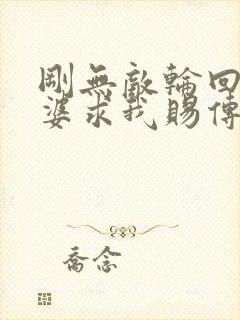 剛無敵輪回
婆求我賜傳
喬念